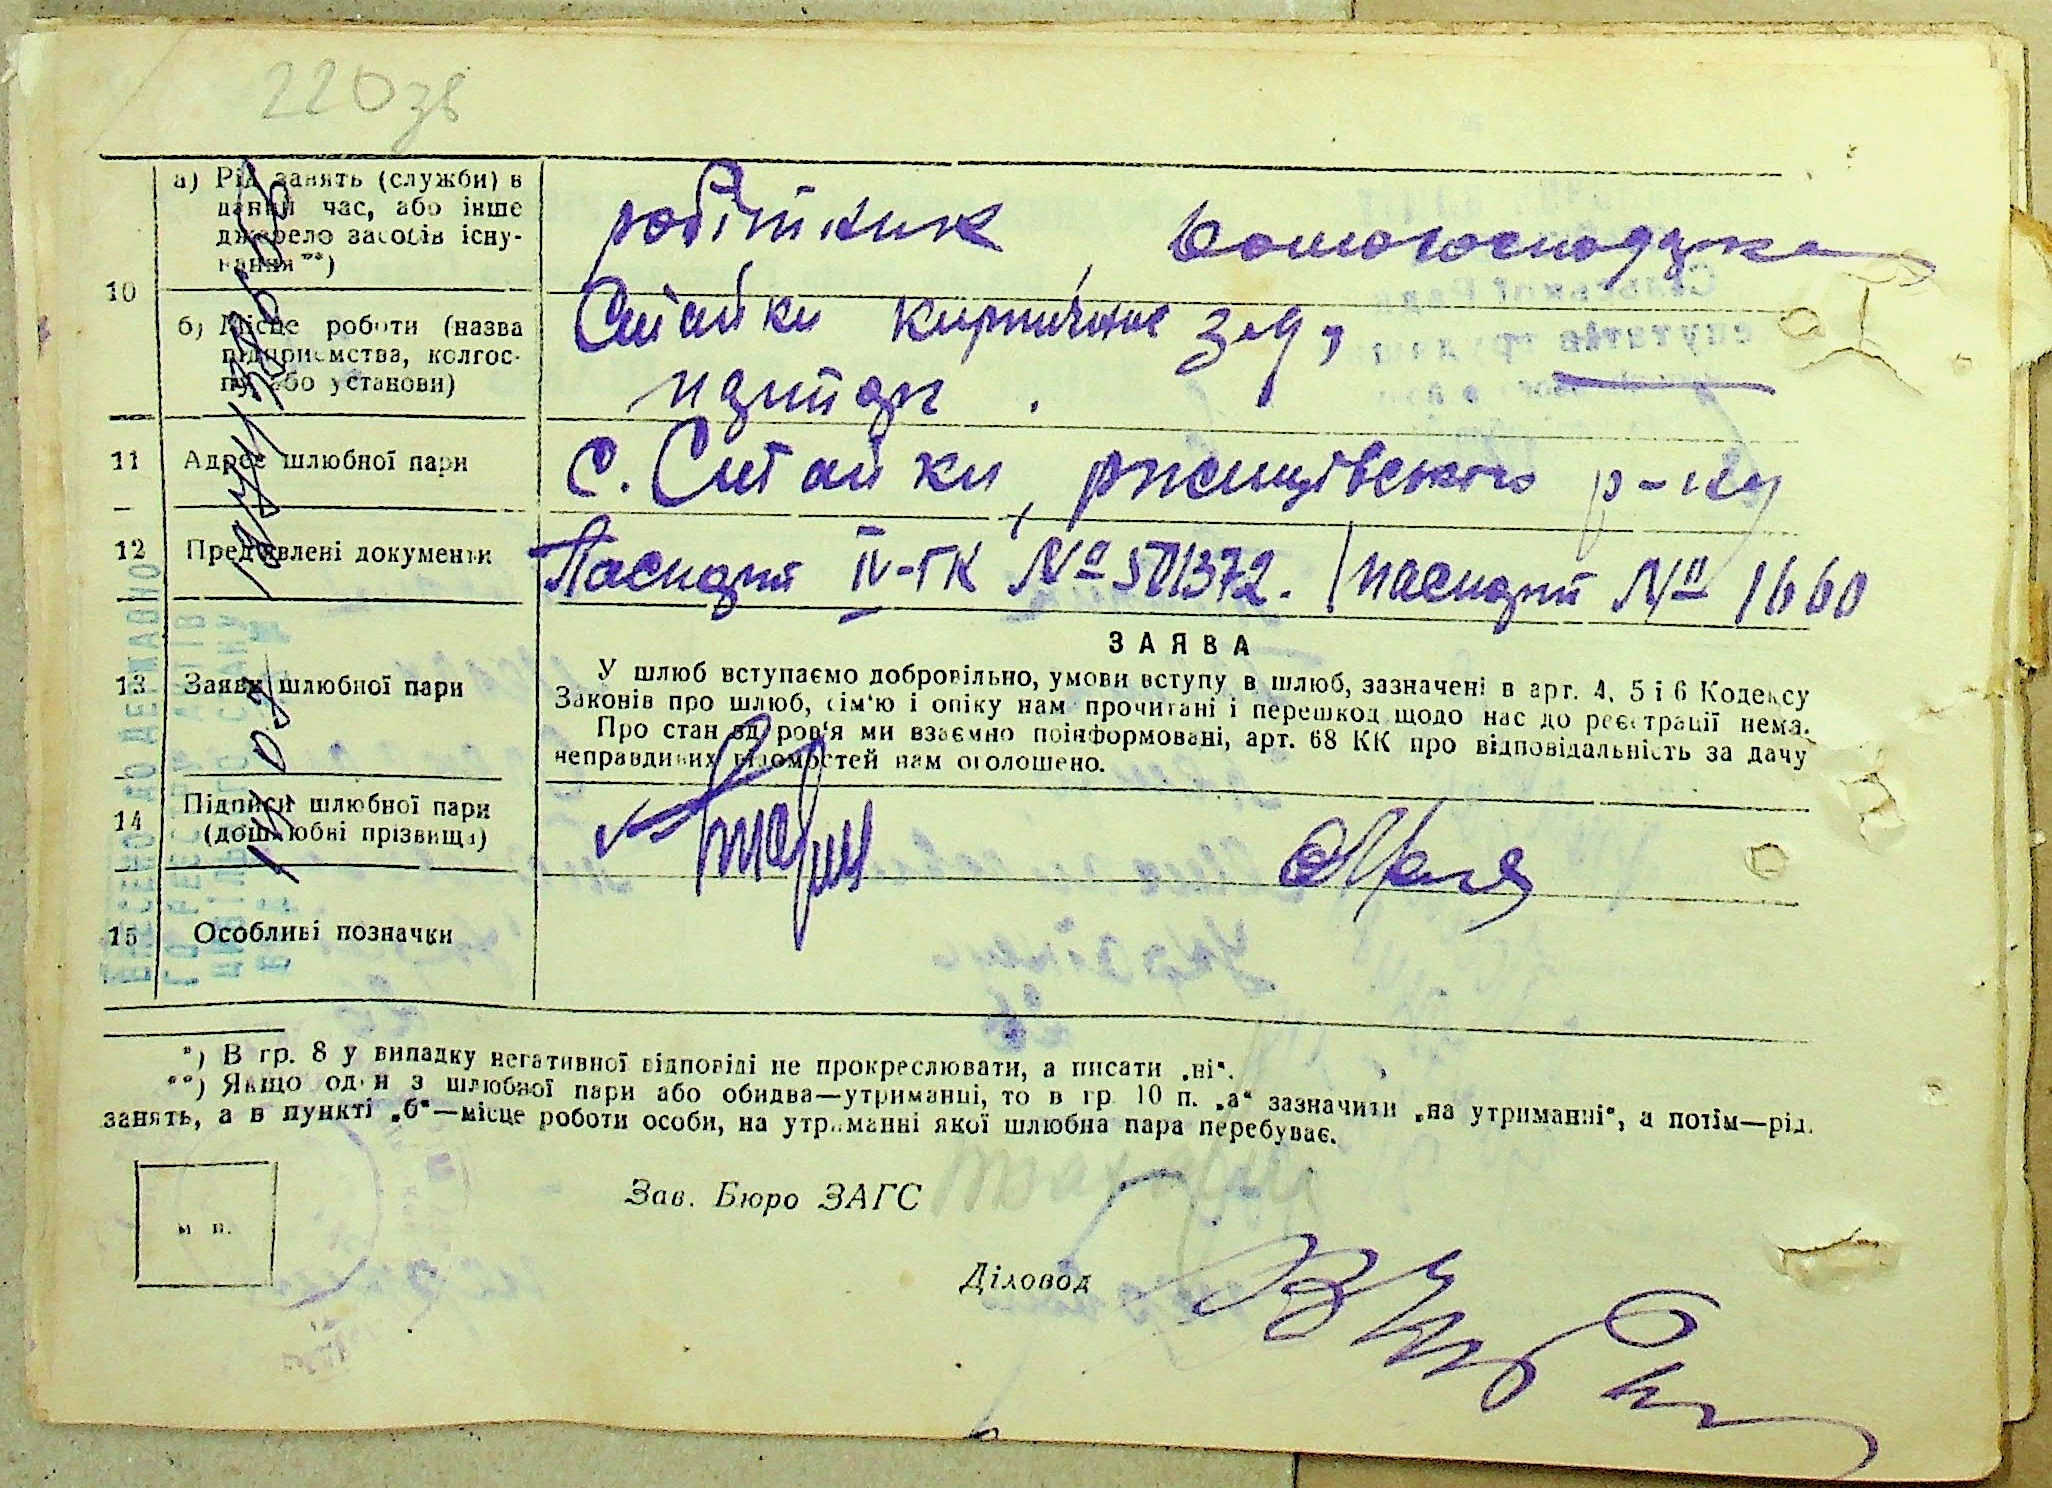 220 зв
10
а) Рід занять (служби) в
даний час, або інше
джерело засобів існу-
вання**)
робітник
домогосподарка
б) Місце роботи (назва
підприємства, колгос-
пу або установи)
Стайки
11
Адрес шлюбної пари
С. Стайки, ржищівського р-ну
12
Пред'явлені документи
Паспорт IV-ГК № 501372. / паспорт № 1660
13
Заяви шлюбної пари
ЗАЯВА
У шлюб вступаємо добровільно, умови вступу в шлюб, зазначені в арт. 4, 5 і 6 Кодексу
Законів про шлюб, сім'ю і опіку нам прочитані і перешкод щодо нас до реєстрації нема.
Про стан здоров'я ми взаємно поінформовані, арт. 68 КК про відповідальність за дачу
неправдивих відомостей нам оголошено.
14
Підписи шлюбної пари
(дошлюбні прізвища)
15
Особливі позначки
ВНЕСЕНО ДО ДЕРЖАВНОГО
*) В гр. 8 у випадку негативної відповіді не прокреслювати, а писати „ні“.
**) Якщо один з шлюбної пари або обидва—утриманці, то в гр. 10 п. „а“ зазначити „на утриманні“, а потім—рід
занять, а в пункті „б“—місце роботи особи, на утриманні якої шлюбна пара перебуває.
м п.
Зав. Бюро ЗАГС
Діловод